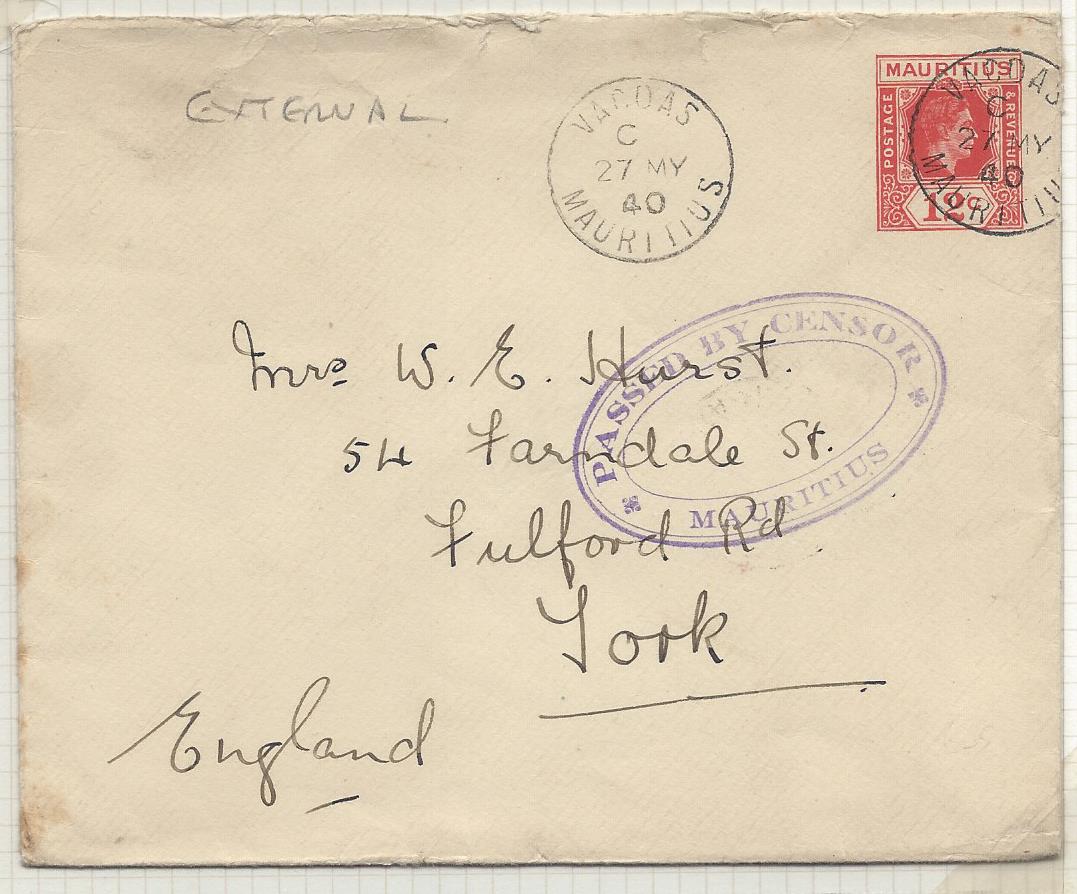 EXTERNAL
VACOAS
C
27 MY
40
MAURITIUS
MAURITIUS
POSTAGE
& REVENUE
12c
VACOAS
C
27 MY
40
MAURITIUS
PASSED BY CENSOR
MAURITIUS
Mrs W. E. Hurst.
54 Farndale St.
Fulford Rd
York
England